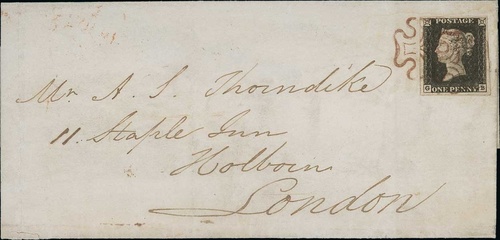 POSTAGE
ONE PENNY
Mr. A. S. Thorndike
11. Staple Inn
Holborn
London